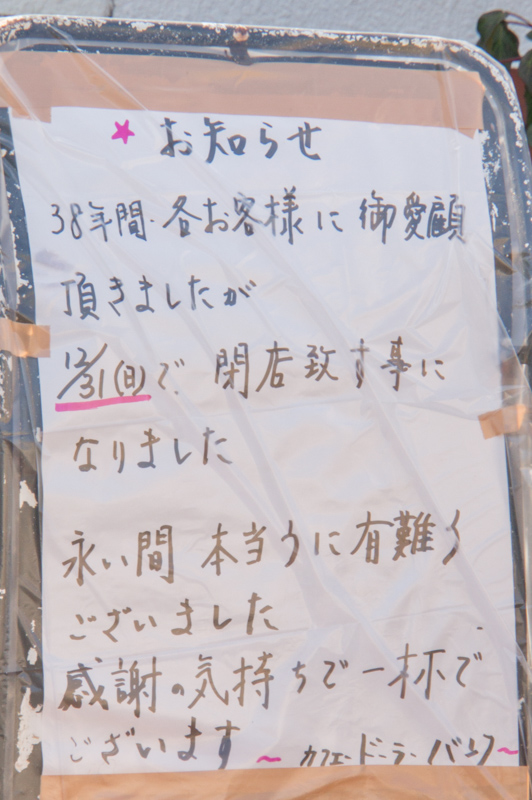 ★ お知らせ
38年間.各お客様に御愛顧
頂きましたが
12/31(日)で、閉店致す事に
なりました
永い間 本当うに有難く
ございました
感謝の気持ちで一杯で
ございます
～カフェードーラー